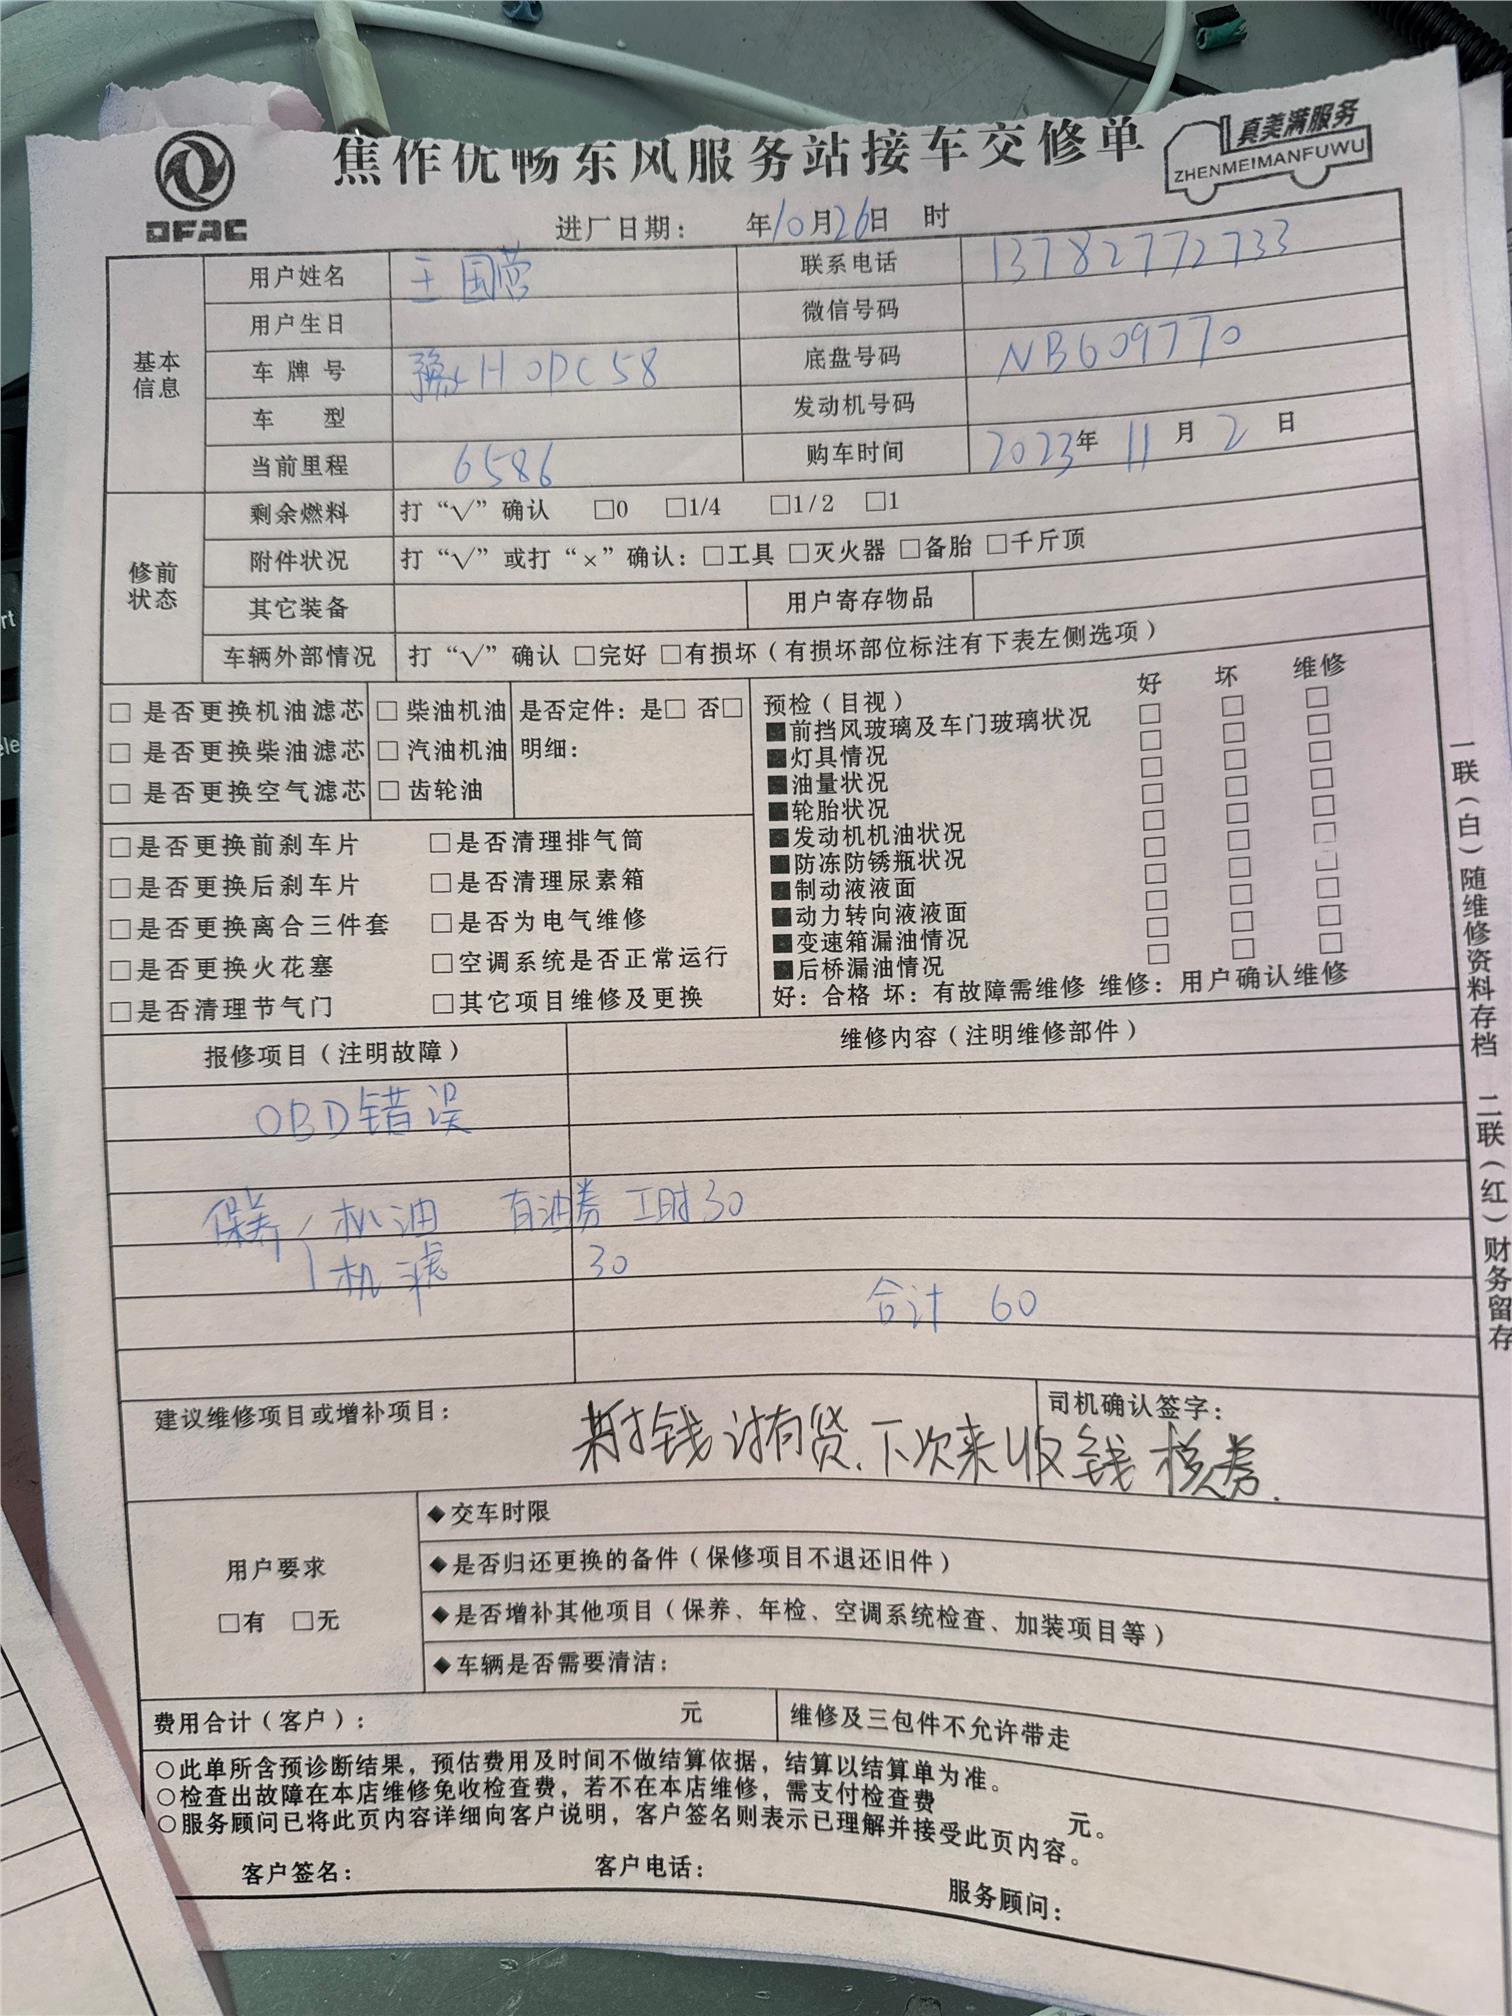 焦作优畅东风服务站接车交修单
真美满服务
ZHENMEIMANFUWU
DFAC
进厂日期： 年10月26日 时
基本信息
用户姓名 王国营 联系电话 13782772733
用户生日 微信号码
车牌号 豫H0DC58 底盘号码 NB609770
车 型 发动机号码
当前里程 6586 购车时间 2023年11月2日
修前状态
剩余燃料 打“√”确认 □0 □1/4 □1/2 □1
附件状况 打“√”或打“×”确认：□工具 □灭火器 □备胎 □千斤顶
其它装备 用户寄存物品
车辆外部情况 打“√”确认 □完好 □有损坏（有损坏部位标注有下表左侧选项）
□ 是否更换机油滤芯 □ 柴油机油 是否定件：是□ 否□
□ 是否更换柴油滤芯 □ 汽油机油 明细：
□ 是否更换空气滤芯 □ 齿轮油
□是否更换前刹车片 □是否清理排气筒
□是否更换后刹车片 □是否清理尿素箱
□是否更换离合三件套 □是否为电气维修
□是否更换火花塞 □空调系统是否正常运行
□是否清理节气门 □其它项目维修及更换
预检（目视） 好 坏 维修
■前挡风玻璃及车门玻璃状况 □ □ □
■灯具情况 □ □ □
■油量状况 □ □ □
■轮胎状况 □ □ □
■发动机机油状况 □ □ □
■防冻防锈瓶状况 □ □ □
■制动液液面 □ □ □
■动力转向液液面 □ □ □
■变速箱漏油情况 □ □ □
■后桥漏油情况 □ □ □
好：合格 坏：有故障需维修 维修：用户确认维修
报修项目（注明故障） 维修内容（注明维修部件）
OBD错误
保养 机油 有油券 工时30
机滤 30
合计 60
建议维修项目或增补项目： 司机确认签字：
钱 没有货.下次来收钱 核券.
用户要求
□有 □无
◆交车时限
◆是否归还更换的备件（保修项目不退还旧件）
◆是否增补其他项目（保养、年检、空调系统检查、加装项目等）
◆车辆是否需要清洁：
费用合计（客户）： 元 维修及三包件不允许带走
○此单所含预诊断结果，预估费用及时间不做结算依据，结算以结算单为准。
○检查出故障在本店维修免收检查费，若不在本店维修，需支付检查费 元。
○服务顾问已将此页内容详细向客户说明，客户签名则表示已理解并接受此页内容。
客户签名： 客户电话： 服务顾问：
一联（白）随维修资料存档 二联（红）财务留存